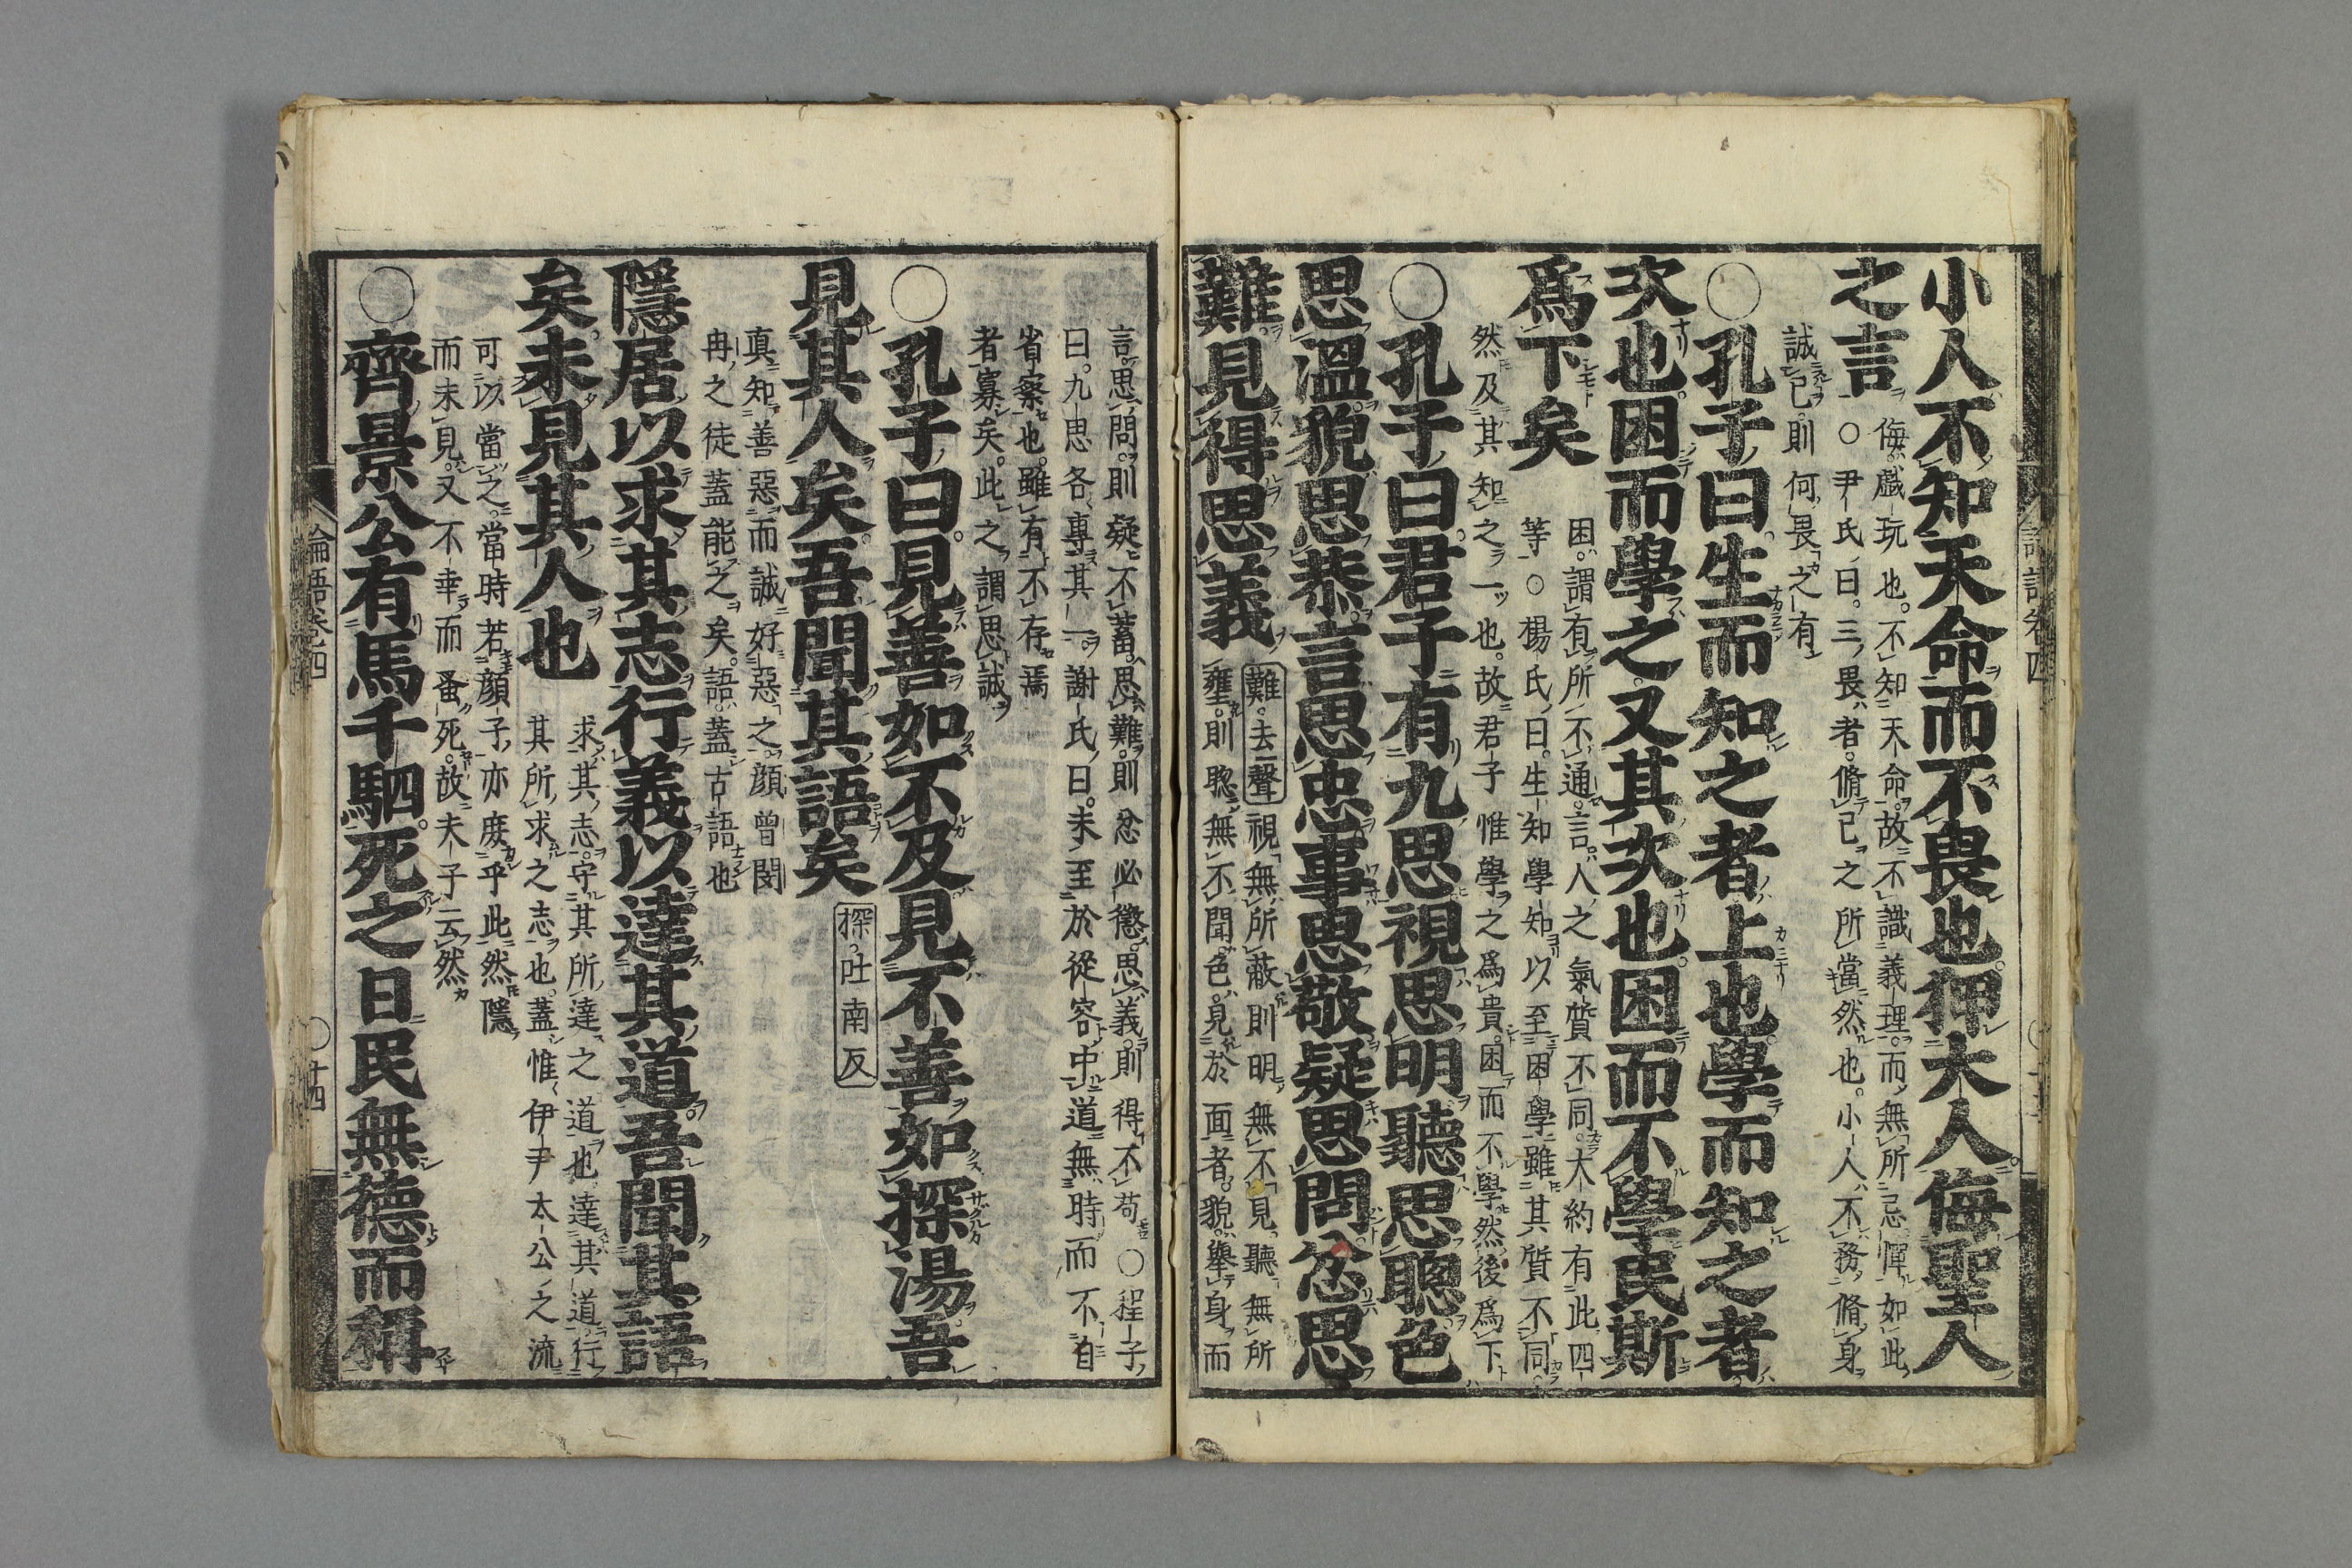 小人不知天命而不畏也狎大人侮聖人
之言
侮戲玩也不知天命故不識義理而無所忌憚如此
○尹氏曰三畏者脩己之所當然也小人不務脩身
誠己則何畏之有
○孔子曰生而知之者上也學而知之者
次也困而學之又其次也困而不學民斯
爲下矣
困謂有所不通言人之氣質不同大約有此四
等○楊氏曰生知學知以至困學雖其質不同
然及其知之一也故君子惟學之爲貴困而不學然後爲下
○孔子曰君子有九思視思明聽思聰色
思溫貌思恭言思忠事思敬疑思問忿思
難見得思義
難去聲視無所蔽則明無不見聽無所
壅則聰無不聞色見於面者貌舉身而
言思問則疑不蓄思難則忿必懲思義則得不苟○程子
曰九思各專其一謝氏曰未至於從容中道無時而不自
省察也雖有不存焉
者寡矣此之謂思誠
○孔子曰見善如不及見不善如探湯吾
見其人矣吾聞其語矣
探吐南反
真知善惡而誠好惡之顏曾閔
冉之徒蓋能之矣語蓋古語也
隱居以求其志行義以達其道吾聞其語
矣未見其人也
求其志守其所達之道也達其道行
其所求之志也蓋惟伊尹太公之流
可以當之當時若顏子亦庶乎此然隱
而未見又不幸而蚤死故夫子云然
○齊景公有馬千駟死之日民無德而稱
論語卷四